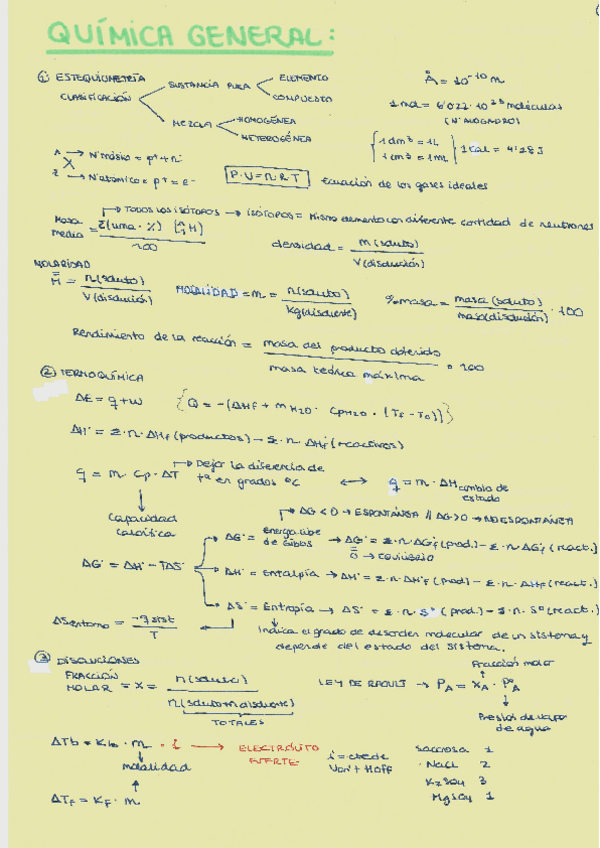 QUÍMICA GENERAL:
① ESTEQUIOMETRÍA
CLASIFICACIÓN
SUSTANCIA PURA
ELEMENTO
COMPUESTO
MEZCLA
HOMOGÉNEA
HETEROGÉNEA
Å = 10⁻¹⁰ m
1 mol = 6'022 · 10²³ moléculas
(Nº AVOGADRO)
1 dm³ = 1L
1 cm³ = 1 mL
1 cal = 4'18 J
A → Nº másico = p⁺ + n
X
Z → Nº atómico = p⁺ = e⁻
P·V = n·R·T
Ecuación de los gases ideales
→ TODOS LOS ISÓTOPOS → ISÓTOPOS = Mismo elemento con diferente cantidad de neutrones
Masa media = Σ(uma · %) / 100
densidad = m(soluto) / V(disolución)
MOLARIDAD
M = n(soluto) / V(disolución)
MOLALIDAD = m = n(soluto) / Kg(disolvente)
% masa = masa (soluto) / masa(disolución) · 100
Rendimiento de la reacción = masa del producto obtenido / masa teórica máxima · 100
② TERMOQUÍMICA
ΔE = q + w
{Q = -(ΔHf + m H₂O · CpH₂O · (Tf - To))}
ΔH° = Σ·n·ΔHf (productos) - Σ·n·ΔHf (reactivos)
q = m · Cp · ΔT
→ Dejar la diferencia de tª en grados ºC
↔ q = m · ΔH cambio de estado
Capacidad calorífica
→ ΔG < 0 → ESPONTÁNEA // ΔG > 0 → NO ESPONTÁNEA
ΔG° = Energía libre de Gibbs → ΔG° = Σ·n·ΔG°f (prod.) - Σ·n·ΔG°f (react.)
0 → equilibrio
ΔG° = ΔH° - TΔS°
ΔH° = Entalpía → ΔH° = Σ·n·ΔH°f (prod) - Σ·n·ΔHf (react.)
ΔS° = Entropía → ΔS° = Σ·n·S° (prod.) - Σ·n·S° (react.)
ΔS entorno = -q sist / T
Indica el grado de desorden molecular de un sistema y
depende del estado del sistema.
③ DISOLUCIONES
FRACCIÓN MOLAR = X = n(soluto) / n(soluto + n disolvente)
TOTALES
LEY DE RAOULT → P_A = X_A · P°_A
Fracción molar
Presión de vapor
de agua
ΔTb = Kb · m · i → ELECTRÓLITO FUERTE
molalidad
ΔTf = Kf · m
i = cte de
Van't Hoff
Sacarosa 1
NaCl 2
K₂SO₄ 3
MgSO₄ 1